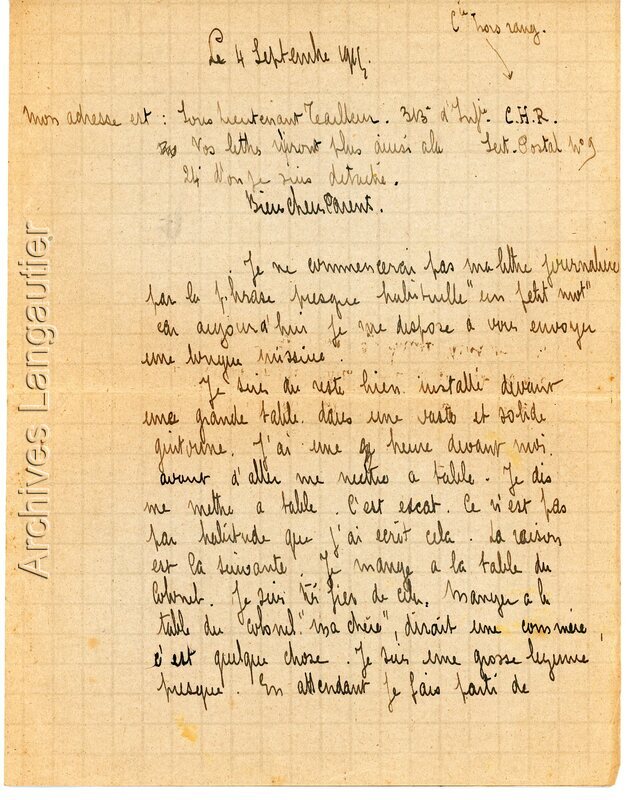 Cie hors rang.
Le 4 Septembre 1915.
Mon adresse est : Sous Lieutenant Teailleur. 313e d'Infie. C.H.R.
Vos lettres n'iront plus ainsi a la Sect. Postal No 9
24 d'on je suis detaché.
Bien Chers Parents.
Je ne commencerai pas ma lettre journaliere
par la phrase presque habituelle "un petit mot"
car aujourd'hui je me dispose a vous envoyer
une longue missive.
Je suis du reste bien installé devant
une grande table dans une vaste et solide
guitoune. J'ai une heure devant moi
avant d'aller me mettre a table. Je dis
me mettre a table. C'est exat. Ce n'est pas
par habitude que j'ai ecrit cela. La raison
est la suivante. Je mange a la table du
Colonel. Je suis très fier de cela. Manger a la
table du Colonel "ma chère", dirait une commère,
c'est quelque chose. Je suis une grosse legume
presque. En attendant je fais parti de
Archives Langautier